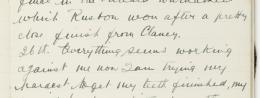 which Rusbon won after a pretty
close finish from Clancy.
26th. Everything seems working
against me now I am trying my
hardest to get my teeth finished, my